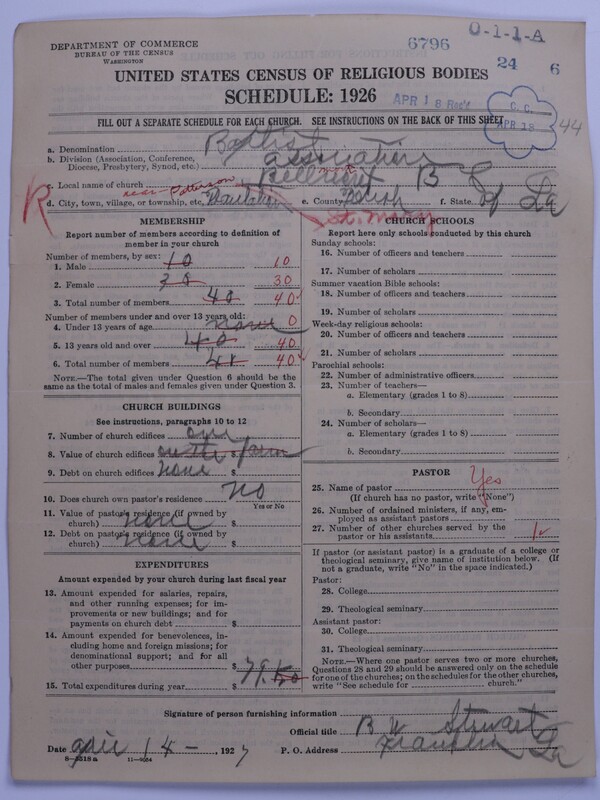 DEPARTMENT OF COMMERCE
BUREAU OF THE CENSUS
WASHINGTON
6796
O-1-1-A
24 6
UNITED STATES CENSUS OF RELIGIOUS BODIES
SCHEDULE: 1926
APR 18 Rec'd
C. C.
APR 18
44
FILL OUT A SEPARATE SCHEDULE FOR EACH CHURCH. SEE INSTRUCTIONS ON THE BACK OF THIS SHEET
a. Denomination Baptist
b. Division (Association, Conference, Diocese, Presbytery, Synod, etc.) association
c. Local name of church
near Patterson
R
d. City, town, village, or township, etc. Plantation e. County Parish f. State of La
St. Mary
MEMBERSHIP
Report number of members according to definition of member in your church
Number of members, by sex:
1. Male 10 10
2. Female 30 30
3. Total number of members 40 40
Number of members under and over 13 years old:
4. Under 13 years of age none 0
5. 13 years old and over 40 40
6. Total number of members 40
NOTE.—The total given under Question 6 should be the same as the total of males and females given under Question 3.
CHURCH BUILDINGS
See instructions, paragraphs 10 to 12
7. Number of church edifices one
8. Value of church edifices on the farm
9. Debt on church edifices none
10. Does church own pastor's residence No
Yes or No
11. Value of pastor's residence (if owned by church) none $
12. Debt on pastor's residence (if owned by church) none $
EXPENDITURES
Amount expended by your church during last fiscal year
13. Amount expended for salaries, repairs, and other running expenses; for improvements or new buildings; and for payments on church debt $
14. Amount expended for benevolences, including home and foreign missions; for denominational support; and for all other purposes $
15. Total expenditures during year $ 79.50
CHURCH SCHOOLS
Report here only schools conducted by this church
Sunday schools:
16. Number of officers and teachers
17. Number of scholars
Summer vacation Bible schools:
18. Number of officers and teachers
19. Number of scholars
Week-day religious schools:
20. Number of officers and teachers
21. Number of scholars
Parochial schools:
22. Number of administrative officers
23. Number of teachers—
a. Elementary (grades 1 to 8)
b. Secondary
24. Number of scholars—
a. Elementary (grades 1 to 8)
b. Secondary
PASTOR
25. Name of pastor Yes
(If church has no pastor, write "None")
26. Number of ordained ministers, if any, employed as assistant pastors
27. Number of other churches served by the pastor or his assistants
If pastor (or assistant pastor) is a graduate of a college or theological seminary, give name of institution below. (If not a graduate, write "No" in the space indicated.)
Pastor:
28. College
29. Theological seminary
Assistant pastor:
30. College
31. Theological seminary
NOTE.—Where one pastor serves two or more churches, Questions 28 and 29 should be answered only on the schedule for one of the churches; on the schedules for the other churches, write "See schedule for church."
Signature of person furnishing information
Official title B W Stewart
Date 14 - 1927 P. O. Address Franklin La
8-5318a 11-9054